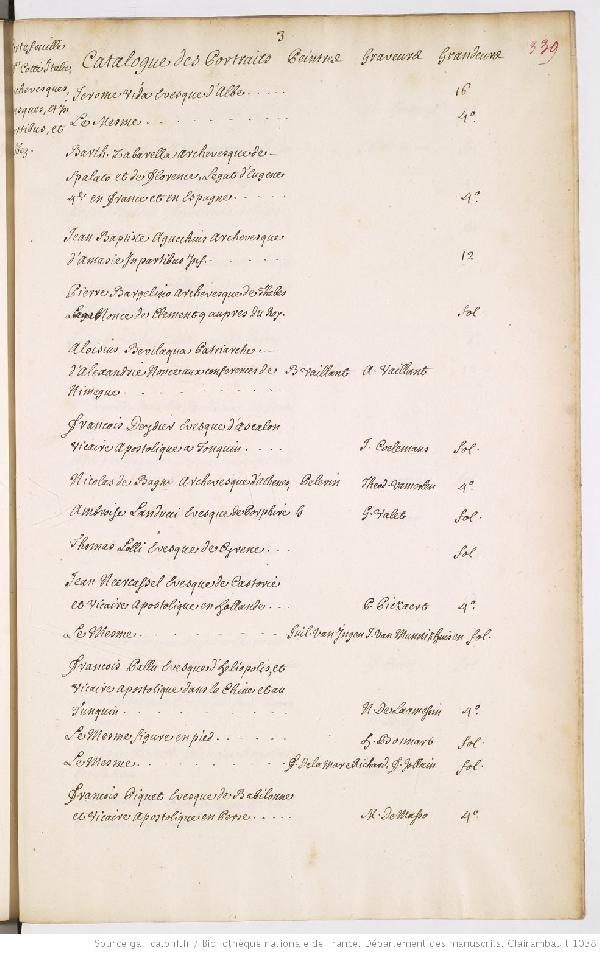 3
339
Catalogue des Portraits Peintre Graveure Grandeure
Jerome Vida Evesque d'Albe . . . . . 16
Le Mesme . . . . . . . . . . 4º
Barth. Zabarella Archevesque de
Spalato et de Florence, Legat d'Eugene
4e en France et en Espagne . . . . . 4º
Jean Baptiste Aguchius Archevesque
d'Amasie In partibus Inf. . . . . . 12
Pierre Bargelino Archevesque de Thebes
Nonce de Clement 9 aupres du Roy. fol
Aloisius Bevilaqua Patriarche
d'Alexandrie Nonce aux conferences de B Vaillant A. Vaillant
Nimegue . . . . . . . .
François Deydier Evesque d'Ascalon
Vicaire Apostolique a Tonquin . . . . J. Coelemans fol.
Nicolas de Bagni Archevesque Pelerin Theod. 4º
Ambroise Landucci Evesque de Porphire G. Valet fol.
Thomas Lolli Evesque de Cyrene . . . fol
Jean Neercassel Evesque de Castorie
et Vicaire Apostolique en Hollande . . P. Pickaert 4º
Le Mesme . . . . . . . . . Guil. Van Ingen J. Van Munnikhuisen fol.
François Pallu Evesque d'Heliopolis, et
Vicaire Apostolique dans la Chine et au
Tunquin . . . . . . . . . N. De Larmessin 4º
Le Mesme figure en pied . . . . . fol.
Le Mesme . . . . . . . . . Delamare Richard, Jollain fol.
François Piquet Evesque de Babilonne
et Vicaire Apostolique en Perse . . . . . 4º
Source gallica.bnf.fr / Bibliothèque nationale de France. Département des manuscrits. Clairambault 1038